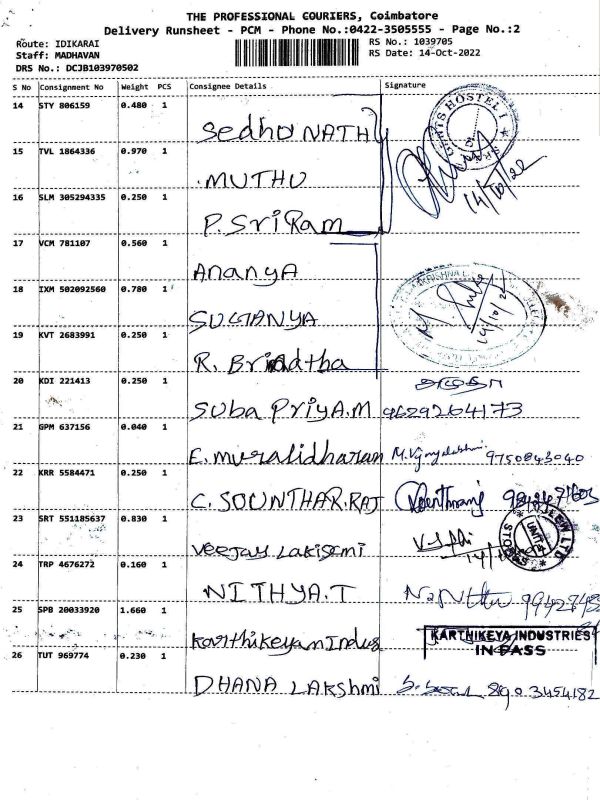 THE PROFESSIONAL COURIERS, Coimbatore
Delivery Runsheet - PCM - Phone No.:0422-3505555 - Page No.:2
Route: IDIKARAI
Staff: MADHAVAN
DRS No.: DCJB103970502
RS No.: 1039705
RS Date: 14-Oct-2022
S No Consignment No Weight PCS Consignee Details Signature
14 STY 806159 0.480 1
Sedhu NATH
15 TVL 1864336 0.970 1
MUTHU
16 SLM 305294335 0.250 1
P. SriRam
14/10/22
17 VCM 781107 0.560 1
AnanyA
18 IXM 502092560 0.780 1
SUGANYA
14/10/22
19 KVT 2683991 0.250 1
R. Brindtha
20 KDI 221413 0.250 1
Suba PriyA.M 9629264173
21 GPM 637156 0.040 1
E. muralidharan 9750843040
22 KRR 5584471 0.250 1
C. SOUNTHAR.RAJ
23 SRT 551185637 0.830 1
Veejay Lakisemi
24 TRP 4676272 0.160 1
NITHYA.T
25 SPB 20033920 1.660 1
KarthikeyanIndus
KARTHIKEYA INDUSTRIES
IN PASS
26 TUT 969774 0.230 1
DHANA LAKShmi